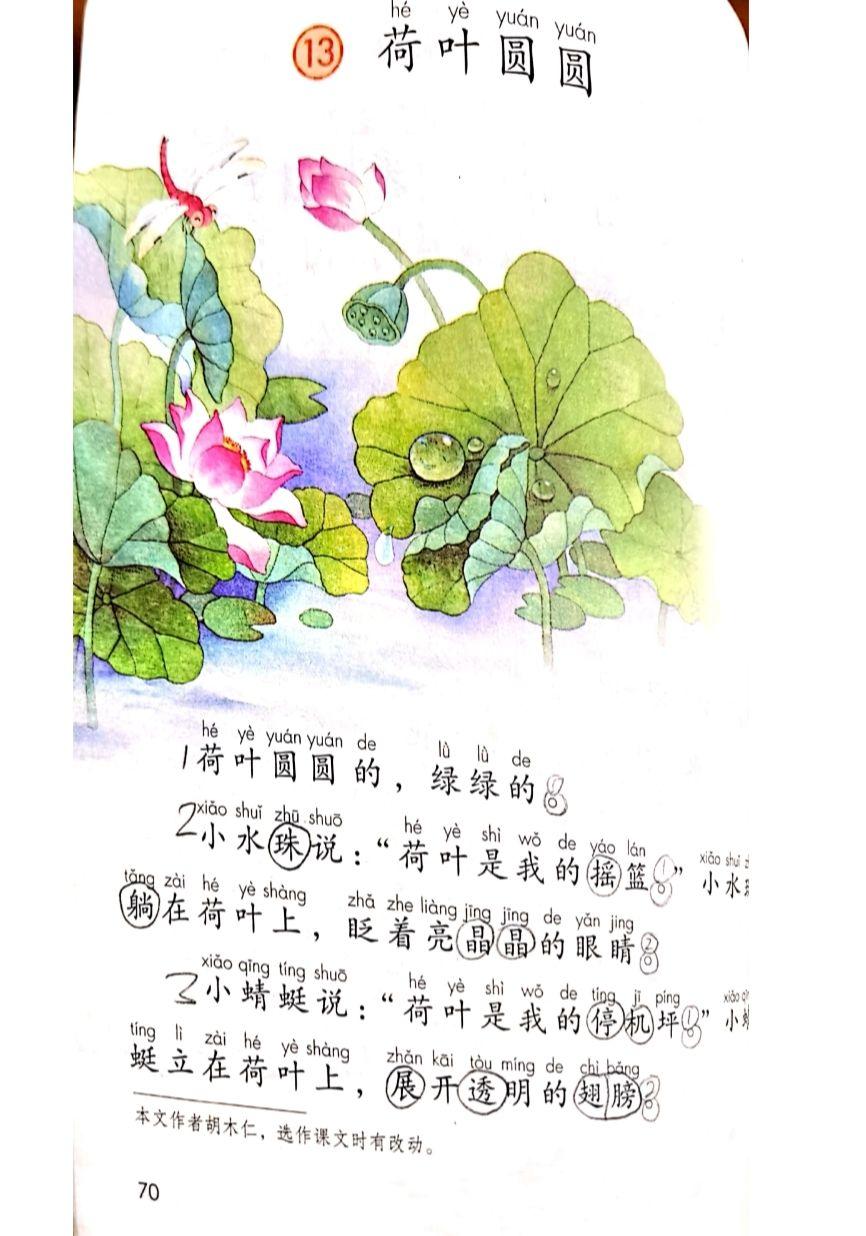 hé yè yuán yuán
13 荷叶圆圆
hé yè yuán yuán de lǜ lǜ de
1荷叶圆圆的，绿绿的
xiǎo shuǐ zhū shuō hé yè shì wǒ de yáo lán xiǎo shuǐ
2小水珠说：“荷叶是我的摇篮”小水
tǎng zài hé yè shàng zhǎ zhe liàng jīng jīng de yǎn jing
躺在荷叶上，眨着亮晶晶的眼睛
xiǎo qīng tíng shuō hé yè shì wǒ de tíng jī píng
3小蜻蜓说：“荷叶是我的停机坪”小
tíng lì zài hé yè shàng zhǎn kāi tòu míng de chì bǎng
蜓立在荷叶上，展开透明的翅膀
本文作者胡木仁，选作课文时有改动。
70